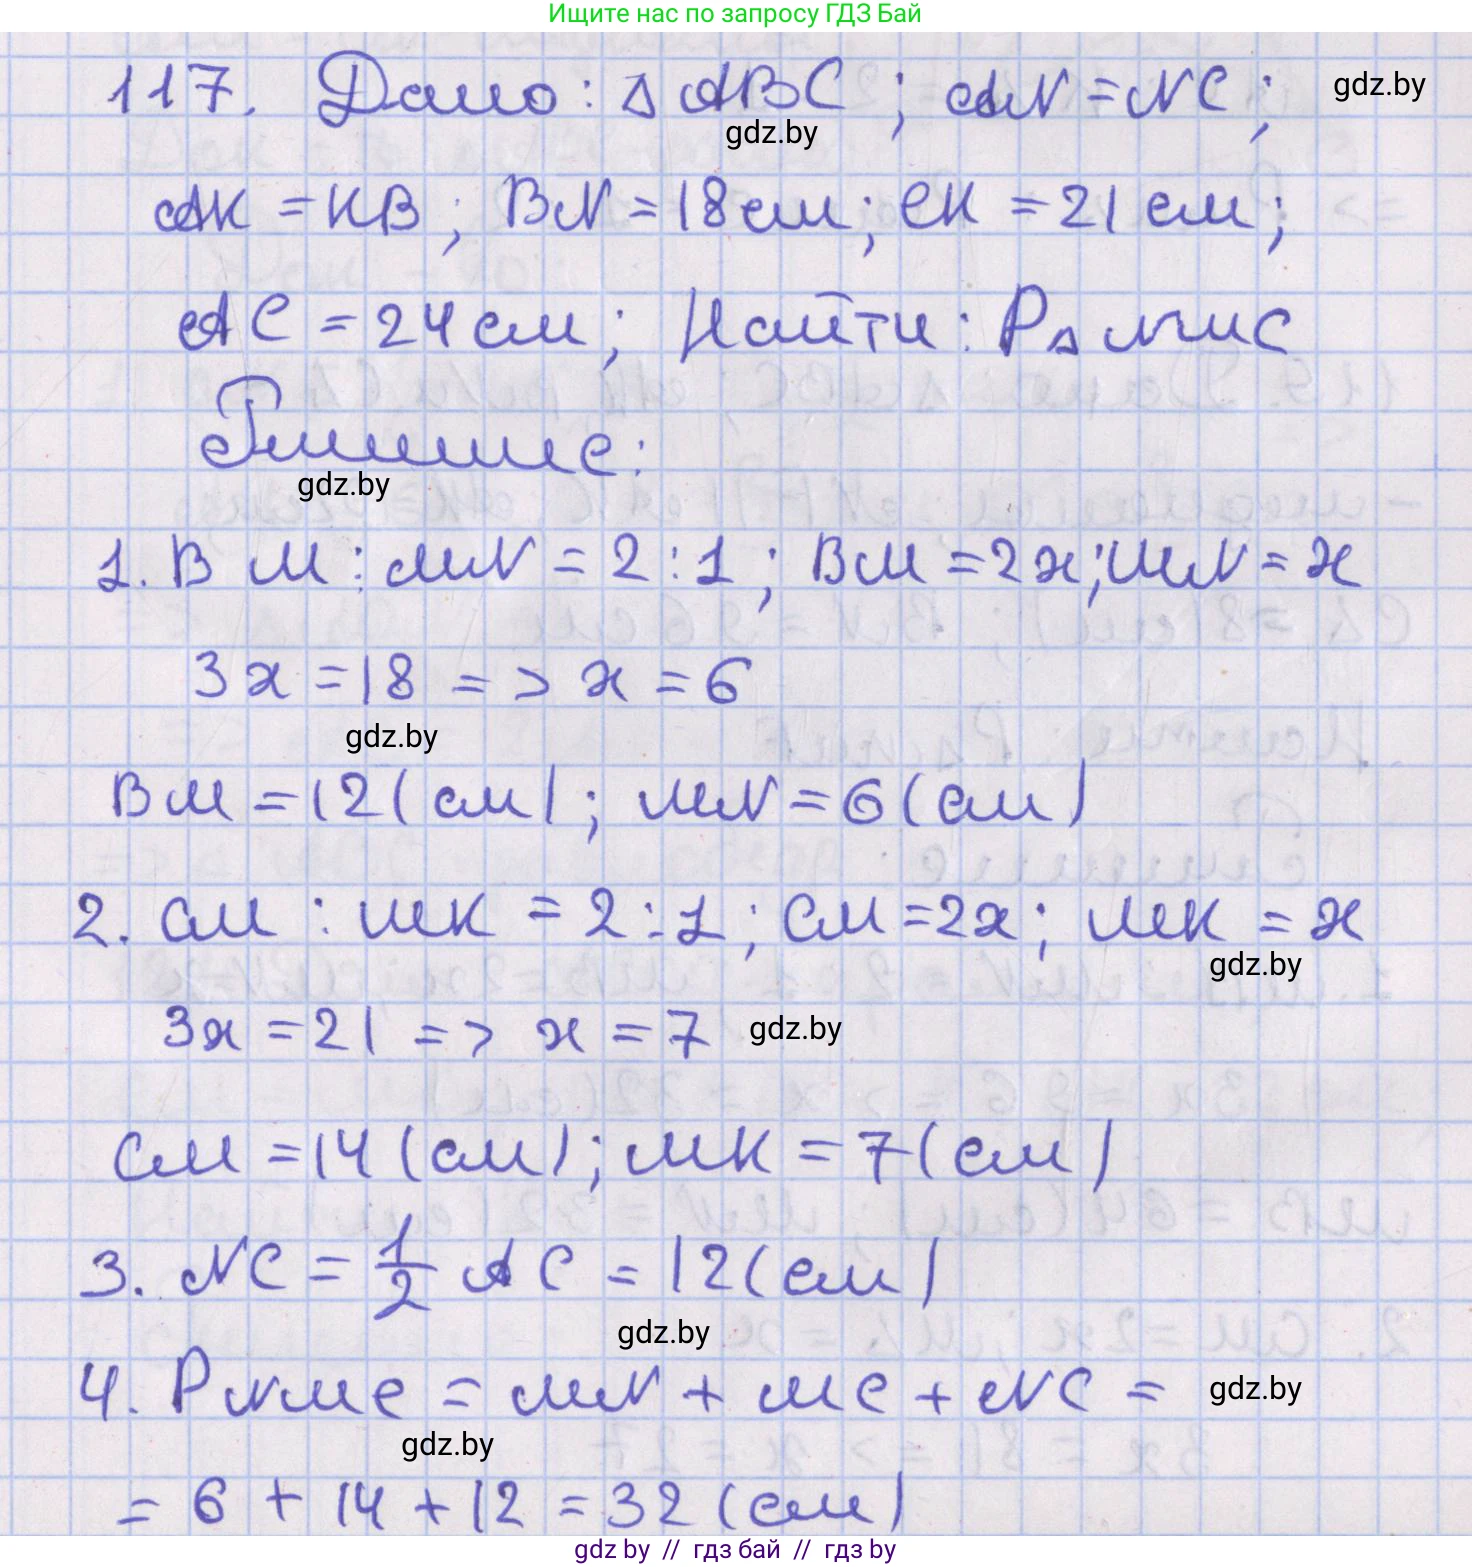 Ищите нас по запросу ГДЗ Бай
117. Дано: Δ ABC; AN = NC; gdz.by
gdz.by
AK = KB; BN = 18 см; CK = 21 см;
AC = 24 см; Найти: P Δ NMC
Решение:
gdz.by
1. BM : MN = 2 : 1; BM = 2x; MN = x
3x = 18 => x = 6
gdz.by
BM = 12 (см); MN = 6 (см)
2. CM : MK = 2 : 1; CM = 2x; MK = x
gdz.by
3x = 21 => x = 7 gdz.by
CM = 14 (см); MK = 7 (см)
3. NC = 1/2 AC = 12 (см)
gdz.by
4. P NMC = MN + MC + NC = gdz.by
gdz.by
= 6 + 14 + 12 = 32 (см)
gdz by // гдз бай // гдз by